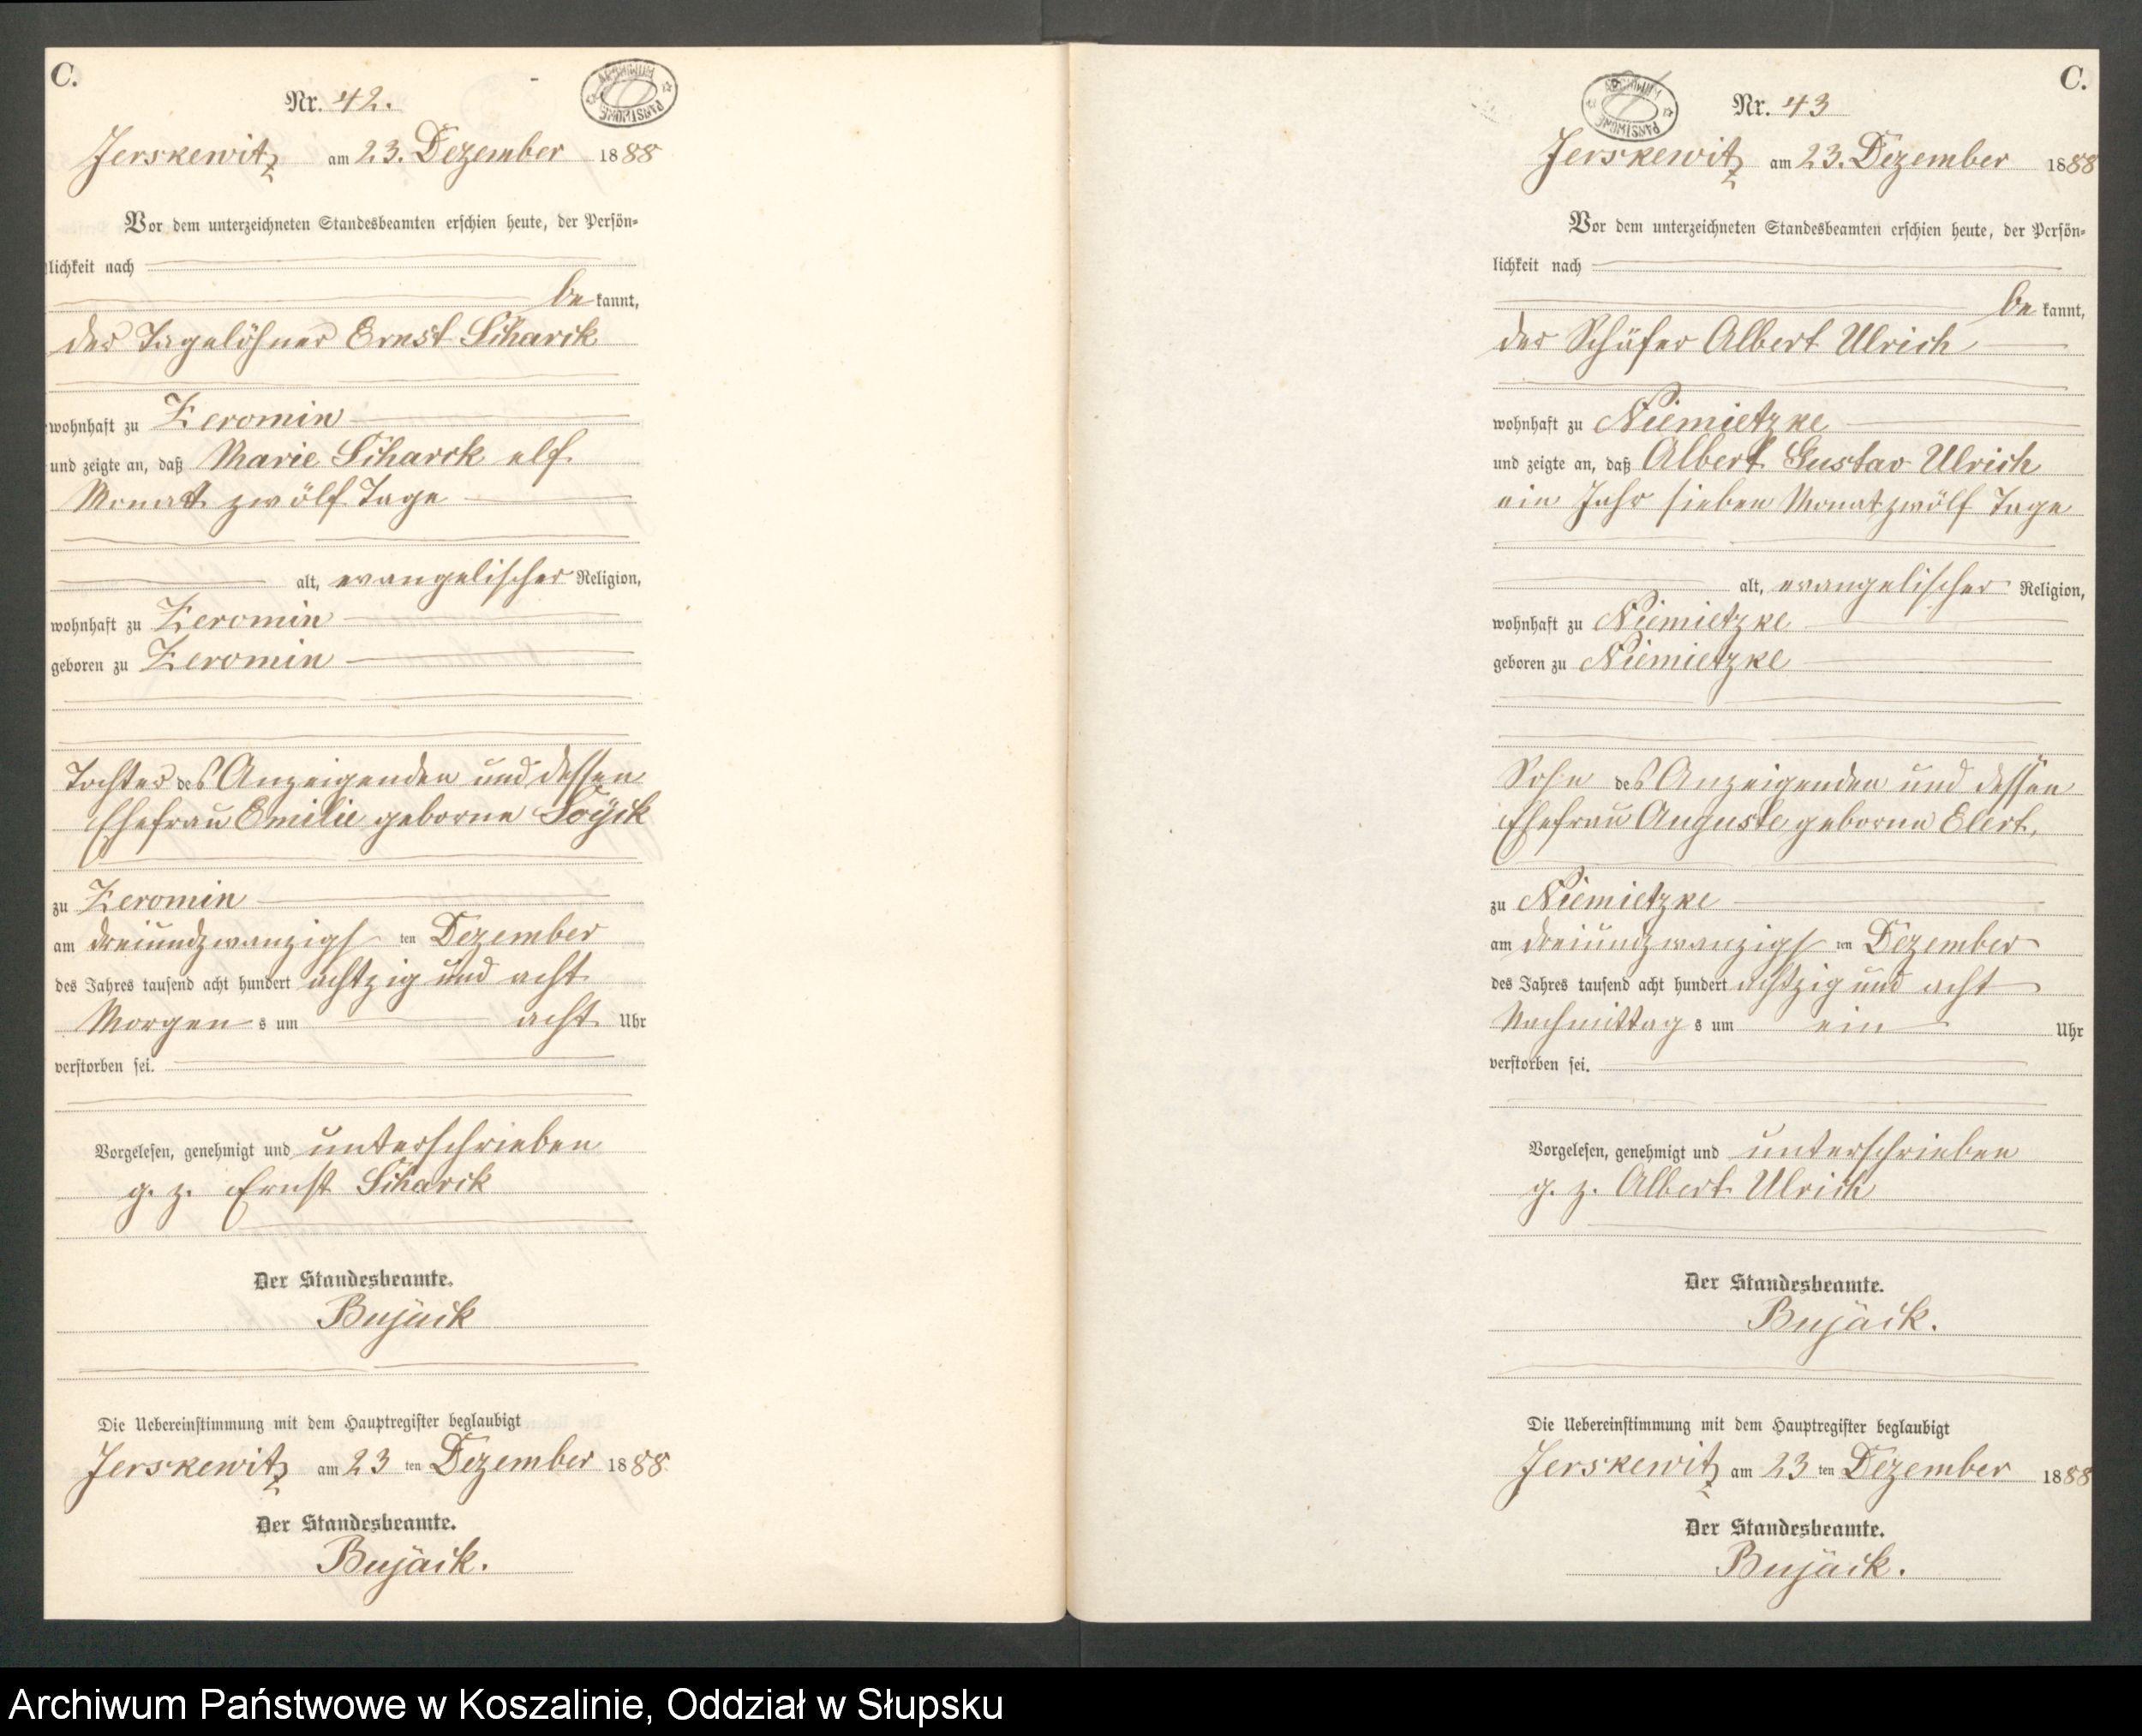 C.
Nr. 42.
ARCHIWUM PAŃSTWOWE
Jerskewitz am 23. Dezember 1888
Vor dem unterzeichneten Standesbeamten erschien heute, der Persön-
lichkeit nach
be kannt,
der Tagelöhner Ernst Scharck
wohnhaft zu Zeromin
und zeigte an, daß Marie Scharck elf
Monat zwölf Tage
alt, evangelischer Religion,
wohnhaft zu Zeromin
geboren zu Zeromin
Tochter des Anzeigenden und dessen
Ehefrau Emilie geborne
zu Zeromin
am dreiundzwanzigs ten Dezember
des Jahres tausend acht hundert achtzig und acht
Morgen s um acht Uhr
verstorben sei.
Vorgelesen, genehmigt und unterschrieben
g. z. Ernst Scharck
Der Standesbeamte.
Bujack
Die Uebereinstimmung mit dem Hauptregister beglaubigt
Jerskewitz am 23 ten Dezember 1888.
Der Standesbeamte.
Bujack.
C.
ARCHIWUM PAŃSTWOWE
Nr. 43
Jerskewitz am 23. Dezember 1888
Vor dem unterzeichneten Standesbeamten erschien heute, der Persön-
lichkeit nach
be kannt,
der Schäfer Albert Ulrich
wohnhaft zu Niemietzke
und zeigte an, daß Albert Gustav Ulrich
ein Jahr sieben Monat zwölf Tage
alt, evangelischer Religion,
wohnhaft zu Niemietzke
geboren zu Niemietzke
Sohn des Anzeigenden und dessen
Ehefrau Auguste geborne Elert,
zu Niemietzke
am dreiundzwanzigs ten Dezember
des Jahres tausend acht hundert achtzig und acht
Nachmittag s um ein Uhr
verstorben sei.
Vorgelesen, genehmigt und unterschrieben
g. z. Albert Ulrich
Der Standesbeamte.
Bujack.
Die Uebereinstimmung mit dem Hauptregister beglaubigt
Jerskewitz am 23 ten Dezember 1888
Der Standesbeamte.
Bujack.
Archiwum Państwowe w Koszalinie, Oddział w Słupsku